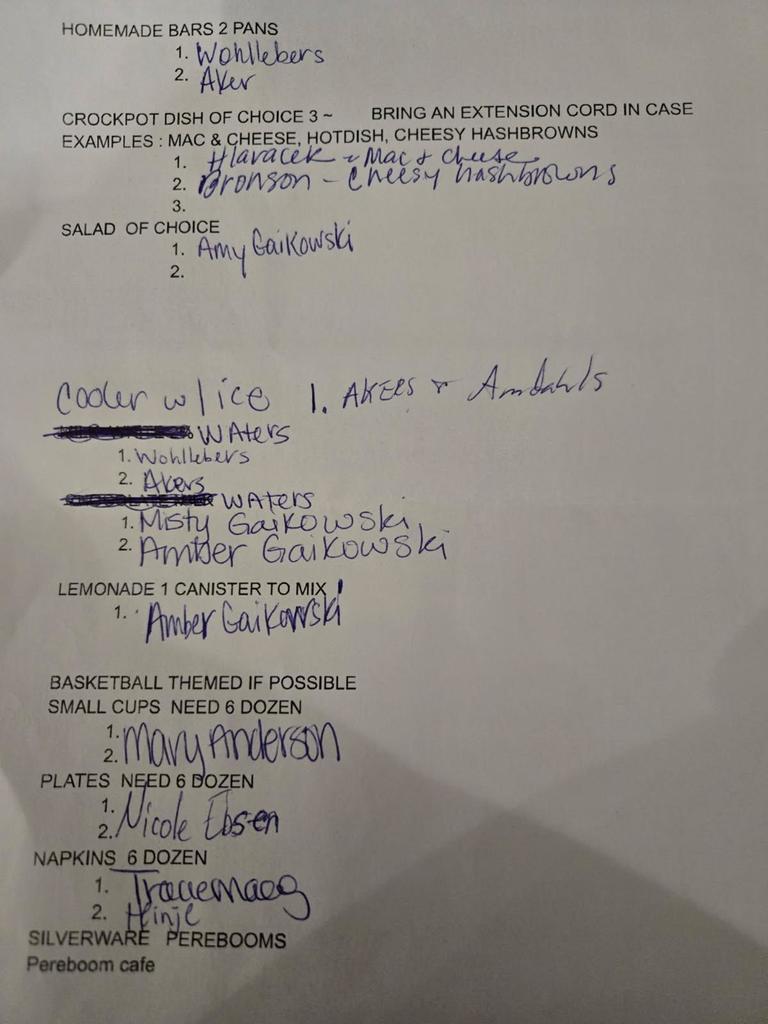 HOMEMADE BARS 2 PANS
1. Wohllebers
2. Aker
CROCKPOT DISH OF CHOICE 3 ~ BRING AN EXTENSION CORD IN CASE
EXAMPLES : MAC & CHEESE, HOTDISH, CHEESY HASHBROWNS
1. Hlavacek - Mac & Cheese
2. Bronson - Cheesy hashbrowns
3.
SALAD OF CHOICE
1. Amy Gaikowski
2.
Cooler w/ice 1. AKERS & Amdahls
WAters
1. Wohllebers
2. Akers
WAters
1. Misty Gaikowski
2. Amber Gaikowski
LEMONADE 1 CANISTER TO MIX
1. Amber Gaikowski
BASKETBALL THEMED IF POSSIBLE
SMALL CUPS NEED 6 DOZEN
1.
2. Mary Anderson
PLATES NEED 6 DOZEN
1.
2. Nicole Ebsen
NAPKINS 6 DOZEN
1.
2.
SILVERWARE PEREBOOMS
Pereboom cafe